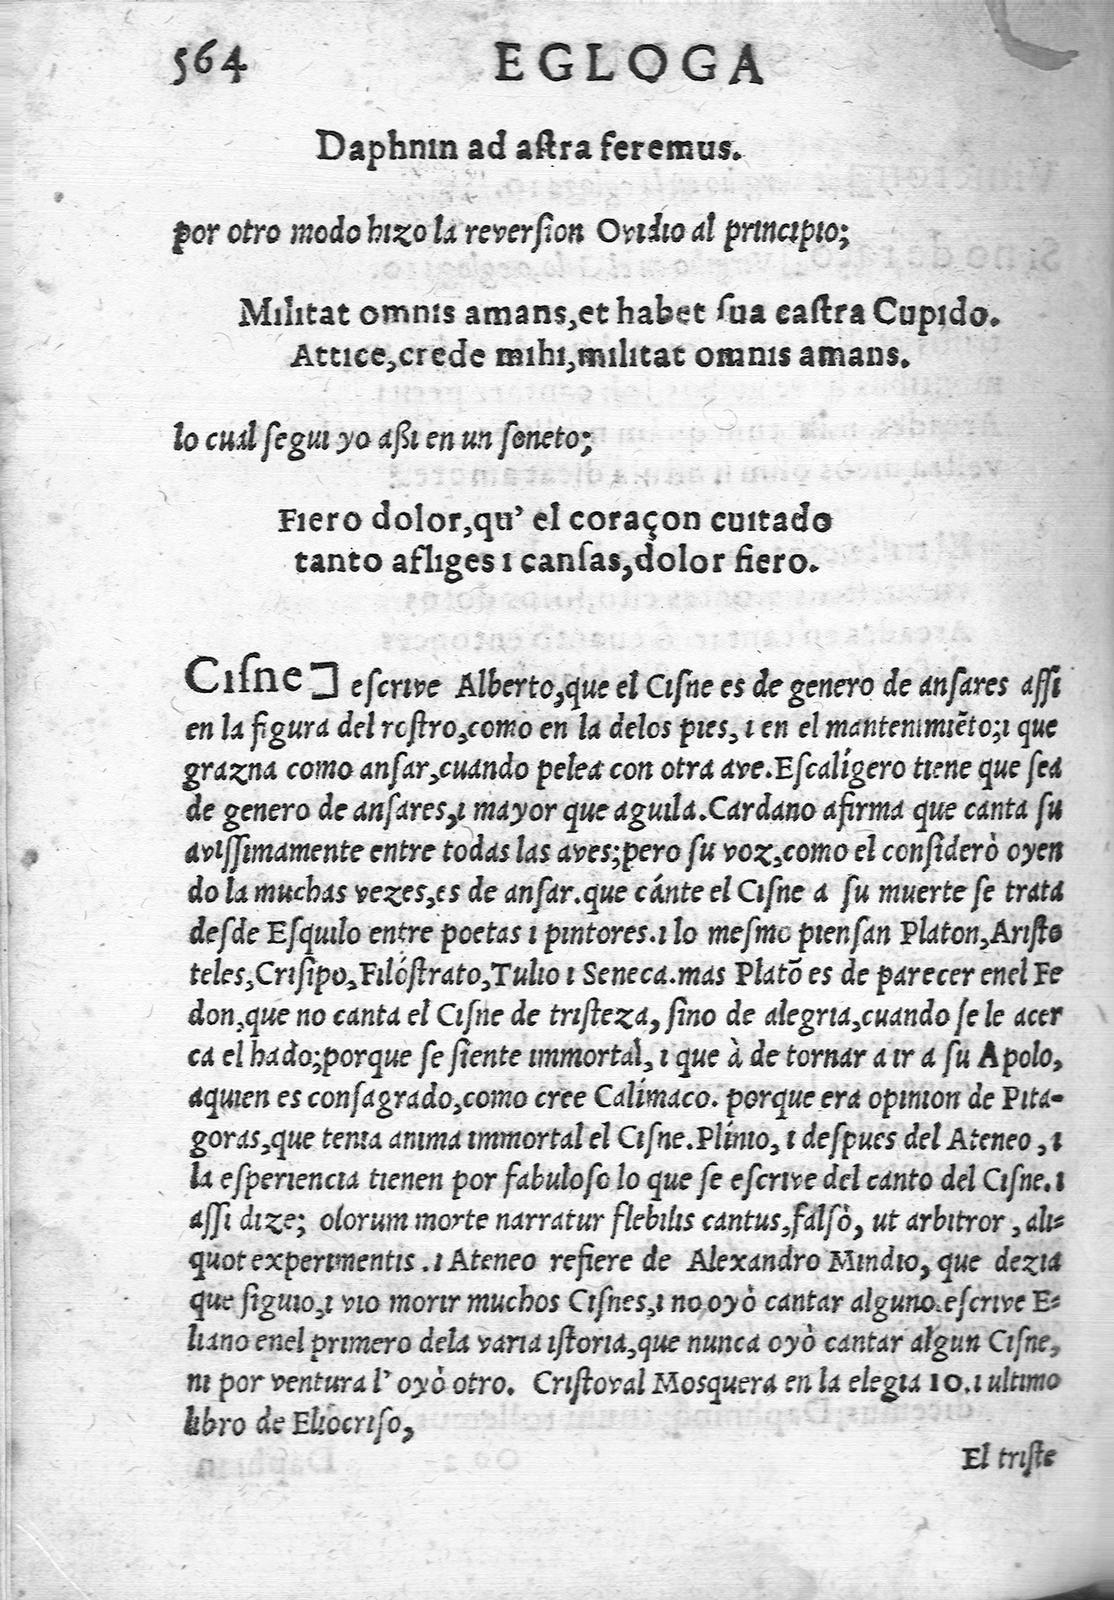 564 EGLOGA
Daphnın ad aſtra feremus.
por otro modo hızo la reverſion Ovıdıo al prıncıpıo;
Mılıtat omnıs amans,et habet ſua caſtra Cupıdo.
Attıce,crede mıhı,mılıtat omnıs amans.
lo cual ſeguı yo aßı en un ſoneto;
Fıero dolor,qu' el coraçon cuıtado
tanto aflıges ı canſas,dolor fiero.
Cıſne] eſcrıve Alberto,que el Cıſne es de genero de anſares aſſı
en la fıgura del roſtro,como en la delos pıes, ı en el mantenımıẽto;ı que
grazna como anſar,cuando pelea con otra ave.Eſcalígero tıene que ſea
de genero de anſares,ı mayor que aguıla.Cardano afırma que canta ſu
avıſſımamente entre todas las aves;pero ſu voz,como el conſıderò oyen
do la muchas vezes,es de anſar.que cánte el Cıſne a ſu muerte ſe trata
deſde Eſquılo entre poetas ı pıntores.ı lo meſmo pıenſan Platon,Arıſto
teles,Crıſıpo,Fılóſtrato,Tulıo ı Seneca.mas Platõ es de parecer enel Fe
don,que no canta el Cıſne de trıſteza, ſıno de alegrıa,cuando ſe le acer
ca el hado;porque ſe ſıente ımmortal, ı que à de tornar a ır a ſu Apolo,
aquıen es conſagrado,como cree Calímaco. porque era opınıon de Pıta-
goras,que tenıa anıma ımmortal el Cıſne.Plínıo, ı deſpues del Ateneo, ı
la eſperıencıa tıenen por fabuloſo lo que ſe eſcrıve del canto del Cıſne.ı
aſſı dıze; olorum morte narratur flebılıs cantus,falſò, ut arbıtror, alı-
quot experımentıs.ı Ateneo refıere de Alexandro Mındıo, que dezıa
que ſıguıo,ı vıo morır muchos Cıſnes,ı no oyò cantar alguno.eſcrıve E-
lıano enel prımero dela varıa ıſtorıa,que nunca oyò cantar algun Cıſne,
nı por ventura l' oyò otro. Crıſtoval Moſquera en la elegıa 10.ı ultımo
lıbro de Elıocrıſo,
El trıſte